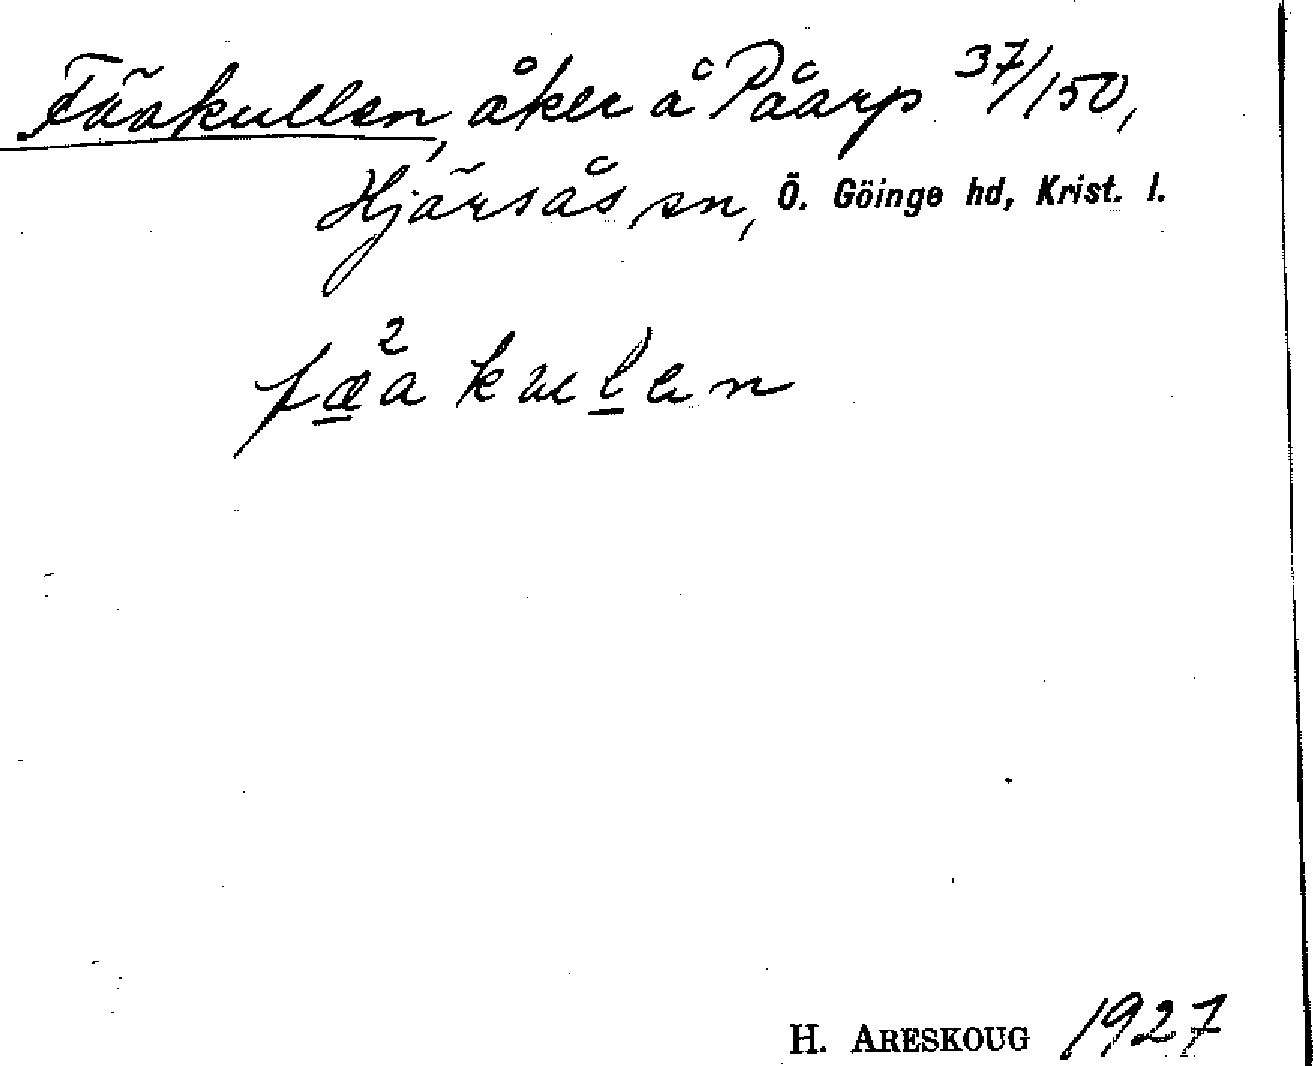 Fäakullen, åker å Påarp 37/150,
Hjärsås sn, Ö. Göinge hd, Krist. l.
fæ²a kulen
H. ARESKOUG 1927